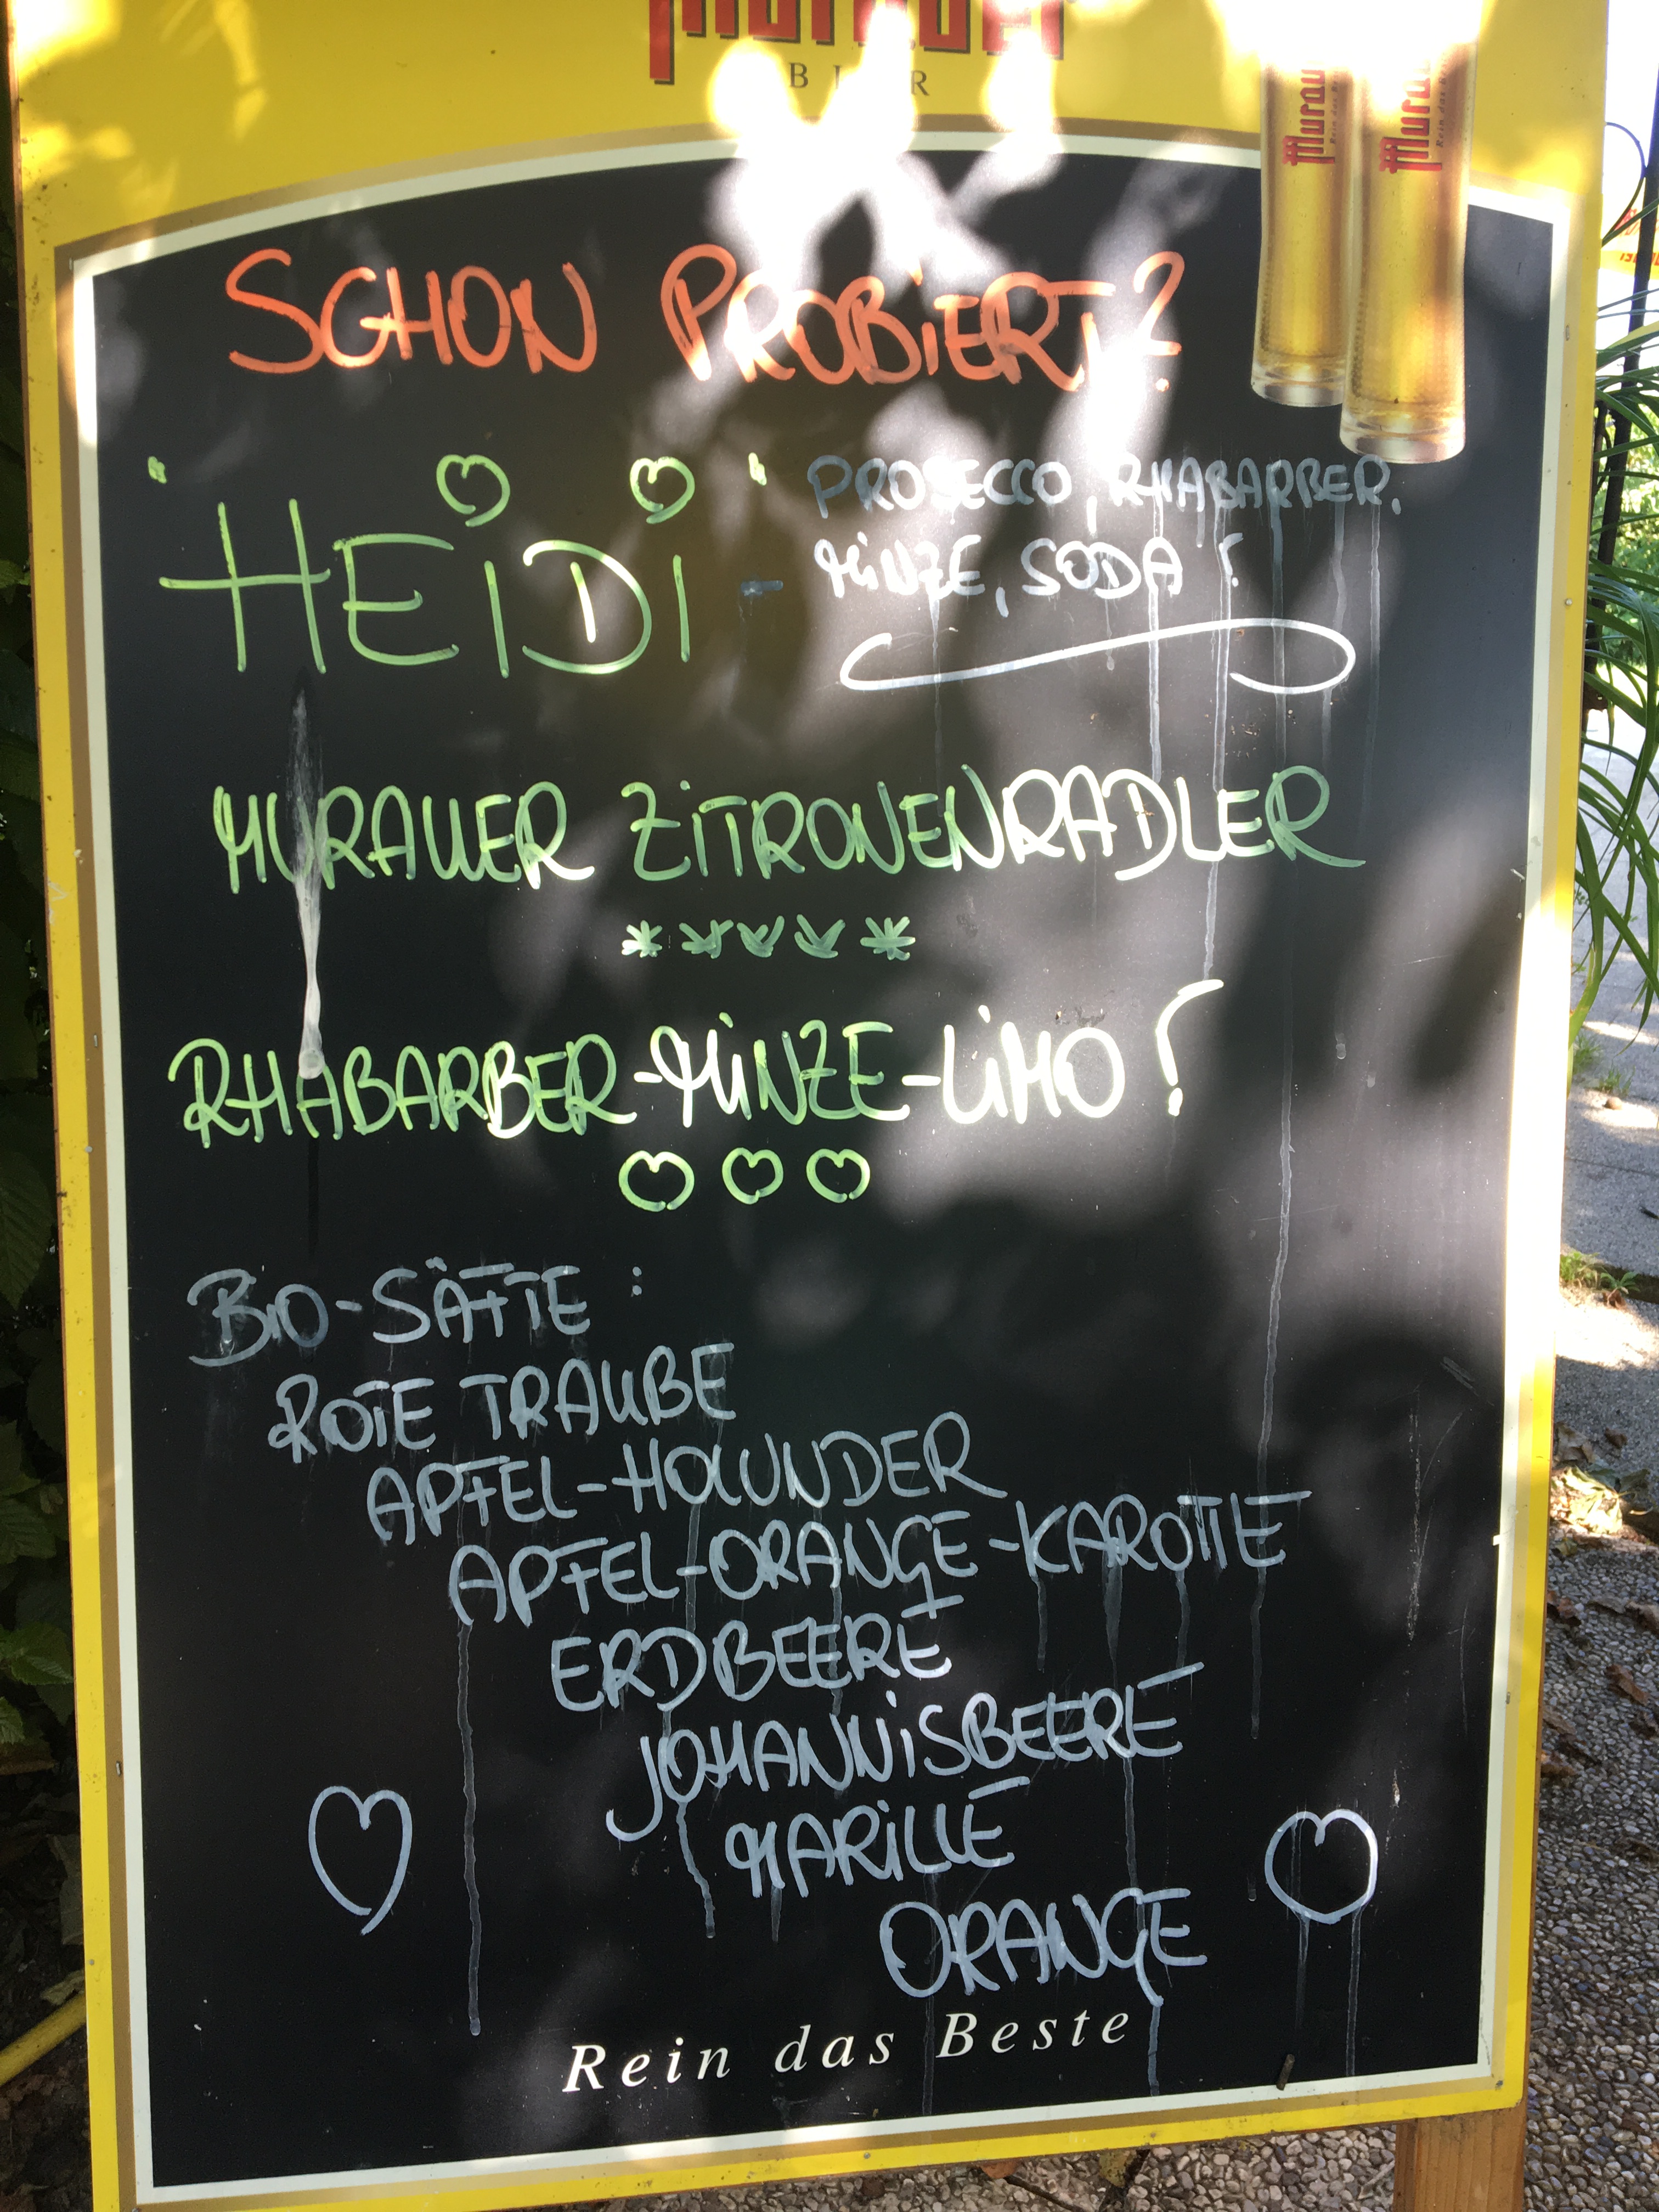 BIER
Murau
Murau
Rein das Be
Rein das
SCHON PROBIERT?
"HEIDI" - PROSECCO, RHABARBER,
MINZE, SODA!
MURAUER ZITRONENRADLER
RHABARBER-MINZE-LIMO!
BIO-SÄFTE:
ROTE TRAUBE
APFEL-HOLUNDER
APFEL-ORANGE-KAROTTE
ERDBEERE
JOHANNISBEERE
MARILLE
ORANGE
Rein das Beste